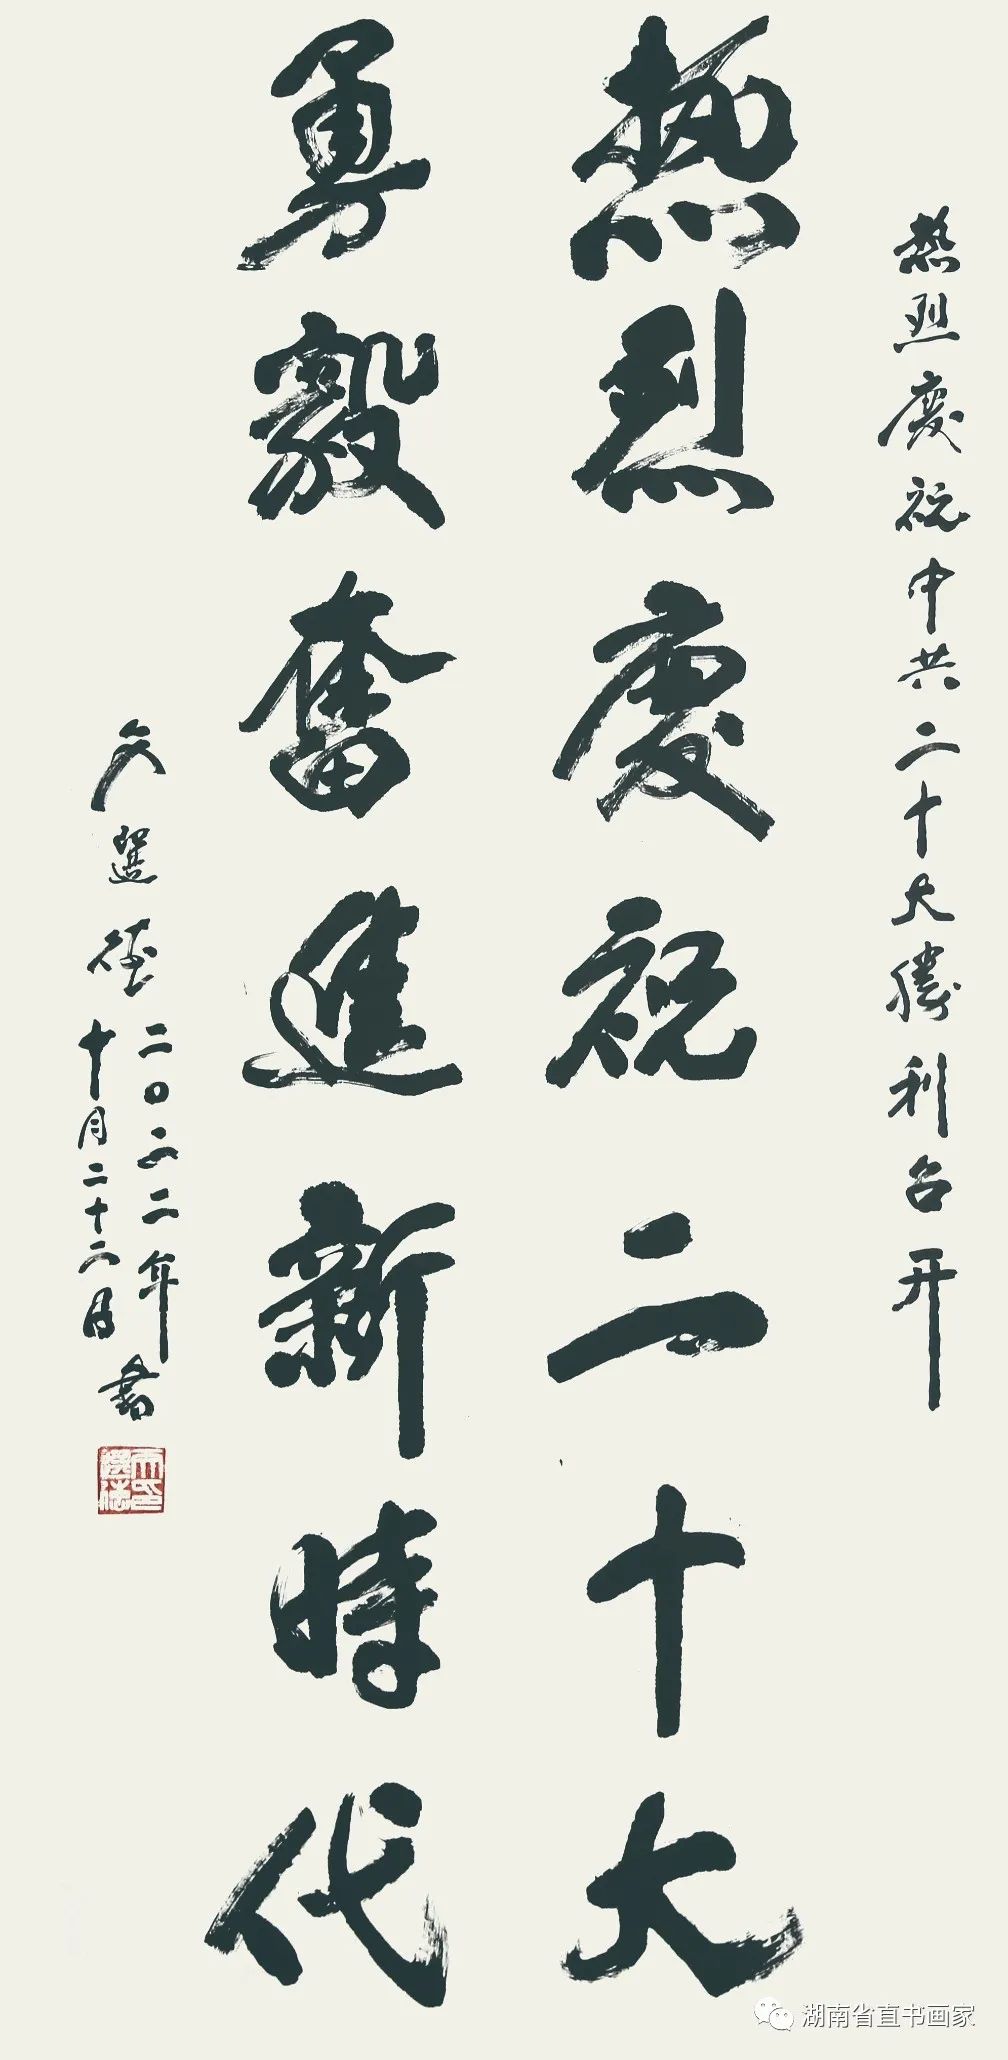 熱烈慶祝中共二十大勝利召开
热烈慶祝二十大
勇毅奮進新時代
文選德
二〇二二年
十月二十二日書
湖南省直书画家